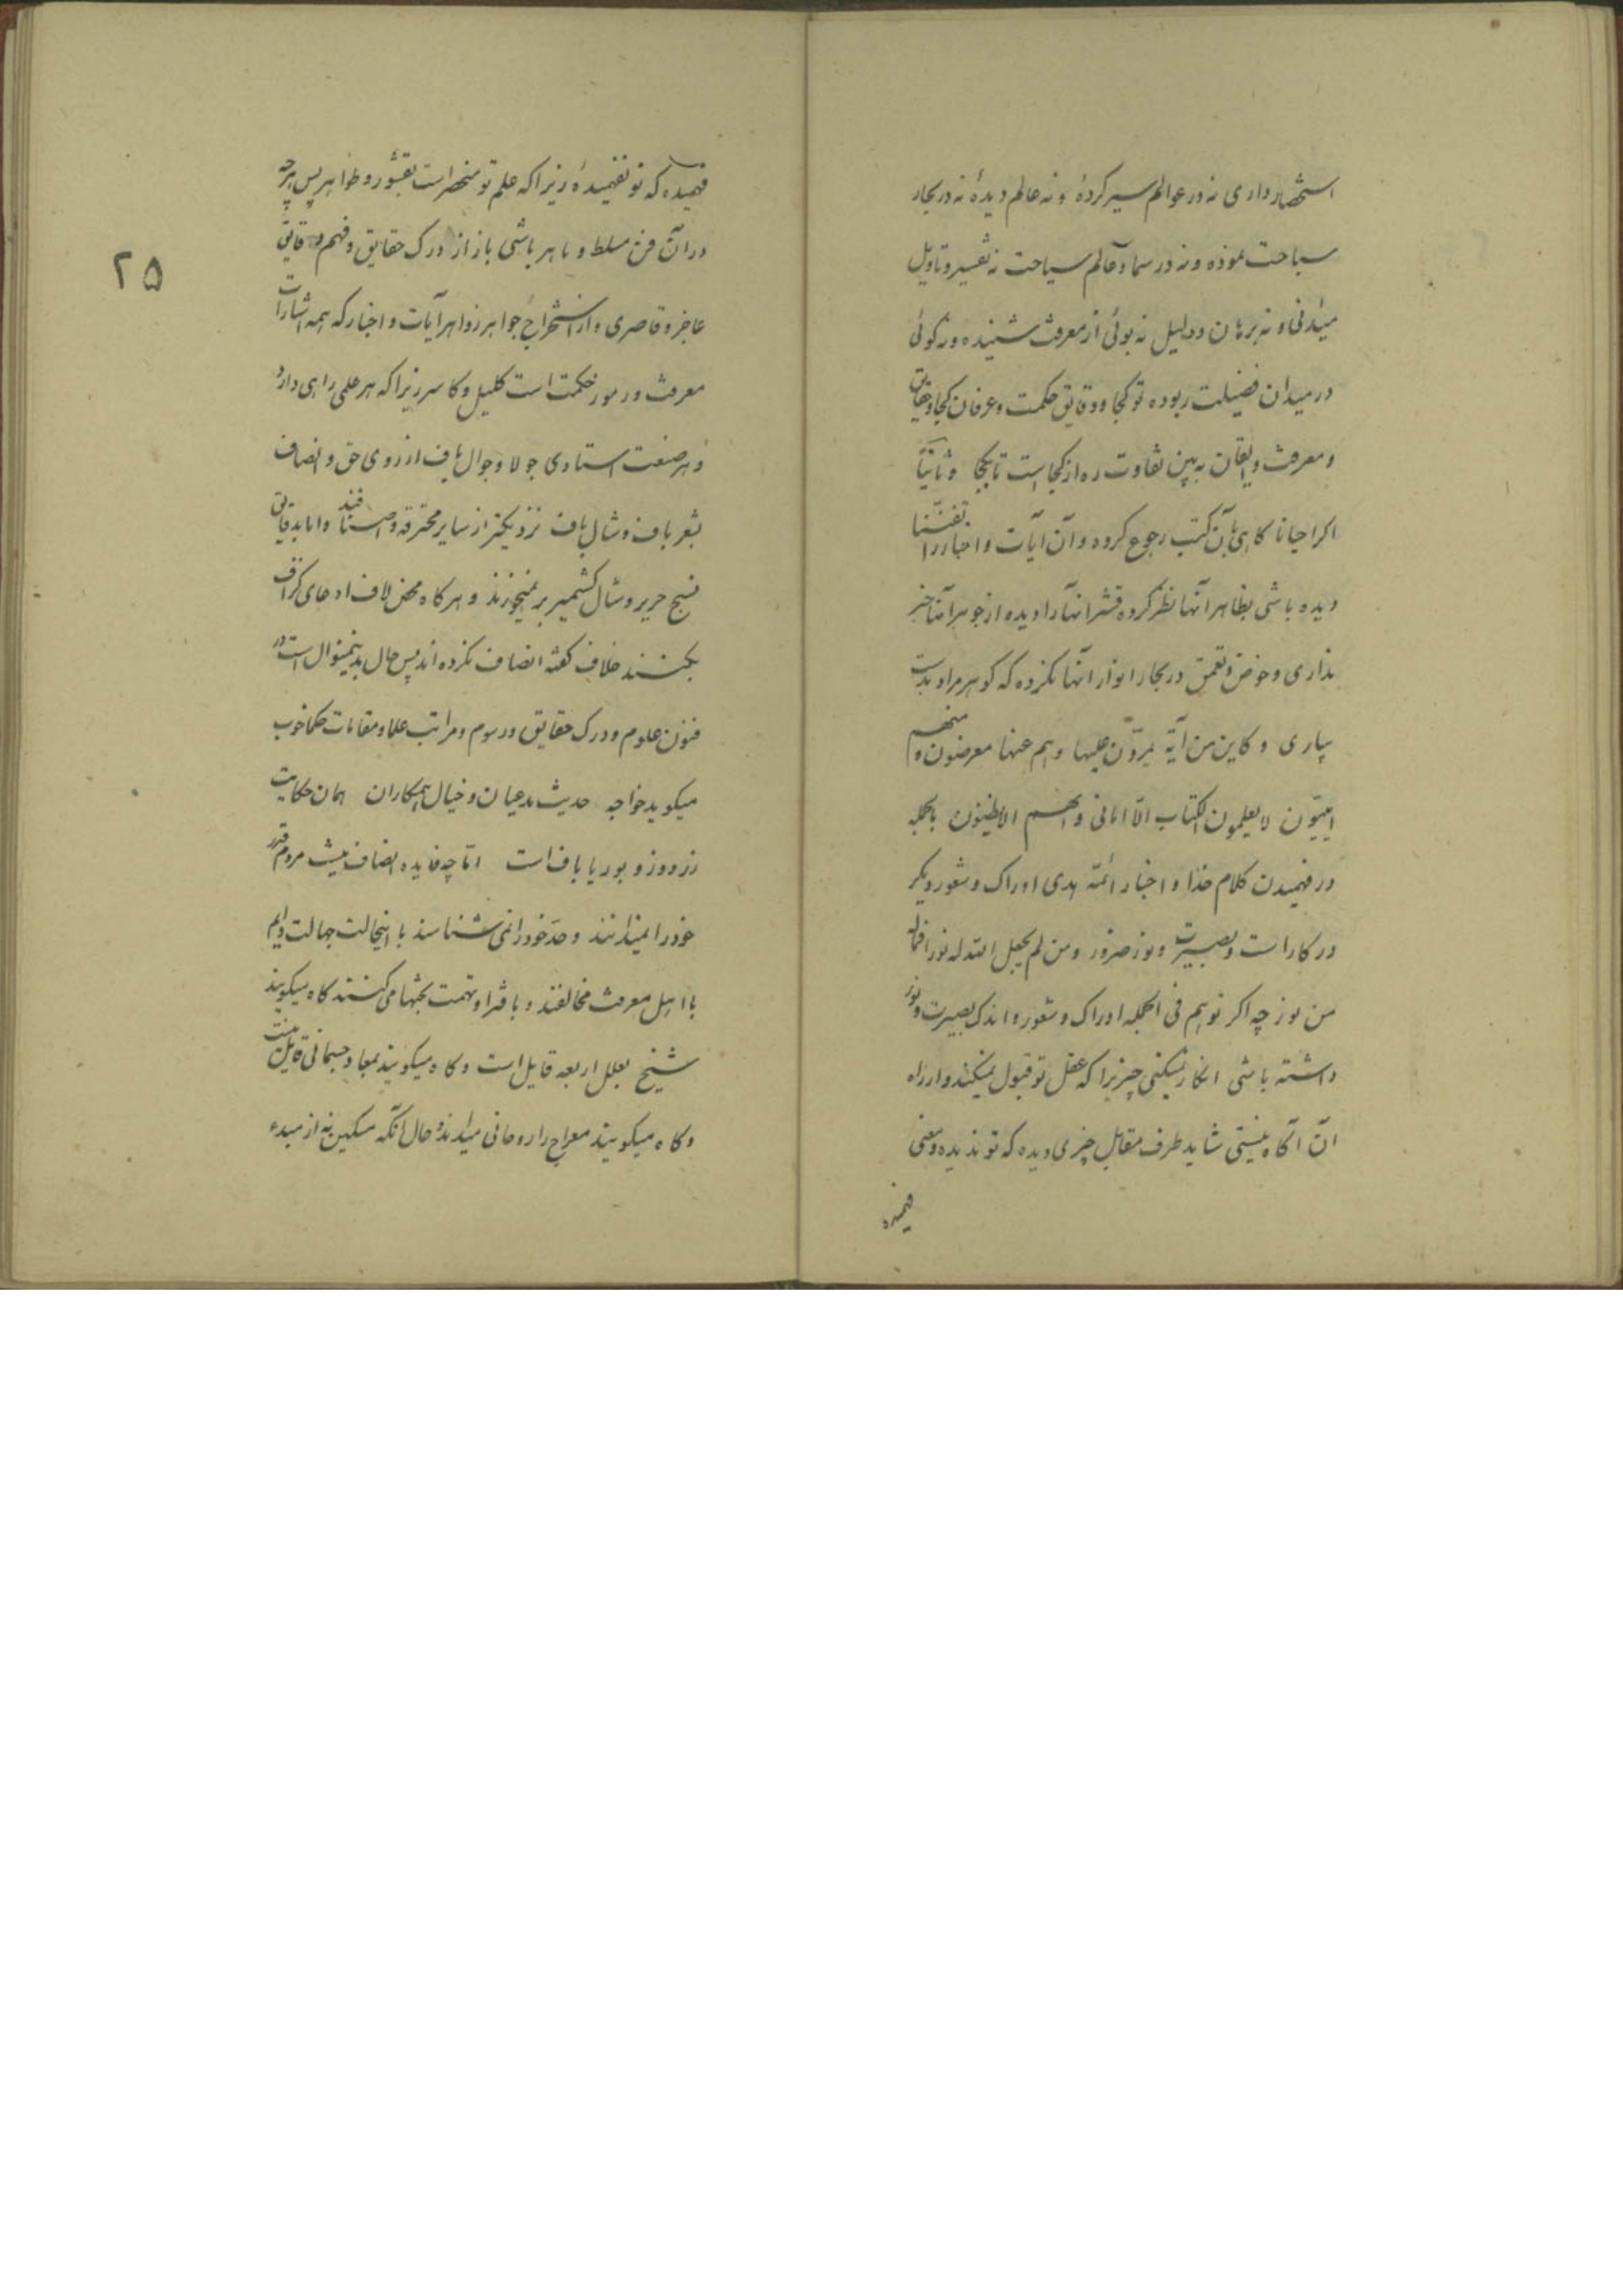 استحضار داری نه در عوالم سیر کردهٔ و نه عالم دیدهٔ نه در بحار
سباحت نموده و نه در سماء عالم سیاحت نه تفسیر و تاویل
میدانی و نه برهان و دلیل نه بوئی از معرفت شنیده و نه گوئی
در میدان فضیلت ربوده تو کجا و دقایق حکمت و عرفان کجا و حقایق
و معرفت و ایقان به بین تفاوت ره از کجا است تا بکجا و ثانیاً
اکر احیانا کاهی بآن کتب رجوع کرده و آن آیات و اخبار را تفننا
دیده باشی بظاهر آنها نظر کرده قشر آنها را دیده از جوهر آنها خبر
نداری و خوض و تعمق در بحار انوار آنها نکرده که کوهر مراد بدست
بیاری و کاین من آیة یمرّون علیها و هم عنها معرضون و منهم
امیّون لا یعلمون الکتاب الّا امانی و ان هم الا یظنون بالجمله
در فهمیدن کلام خدا و اخبار ائمّه هدی ادراک و شعور دیکر
در کار است و بصیرت و نور ضرور و من لم یجعل الله له نورا فما له
من نور چه اکر تو هم فی الجمله ادراک و شعور و اندک بصیرت و نور
داشته باشی انکار نمیکنی چیزیرا که عقل تو قبول نمیکند و از راه
آن آکاه نیستی شاید طرف مقابل چیزی دیده که تو ندیده و معنی
فهمیده
فهمیده که تو نفهمیدهٔ زیرا که علم تو منحصر است بقشور و ظواهر پس هرچه
در آن فن مسلط و ماهر باشی باز از درک حقایق و فهم دقایق
عاجز و قاصری و از استخراج جواهر زواهر آیات و اخبار که همه اشارات
معرفت و رموز حکمت است کلیل و کاسر زیرا که هر علمی راهی دارد
و هر صنعت استادی جولا و جوال باف از روی حق و انصاف
بشعر باف و شال باف نزدیکتر از سایر محترفه و اصنافند و اما بدقایق
نسج حریر و شال کشمیر بر نمیخورند و هرکاه محض لاف ادعای کزاف
بکنند خلاف کفته انصاف نکرده اند پس حال بدینمنوال است در
فنون علوم و درک حقایق و رسوم و مراتب علما و مقامات حکما خوب
میکوید خواجه حدیث مدعیان و خیال همکاران همان حکایت
زردوز و بوریا باف است امّا چه فایده انصاف نیست مردم قدر
خود را نمیدانند و حدّ خود را نمی شناسند با اینحالت جهالت دایم
با اهل معرفت مخالفند و بافترا و تهمت بحثها می کنند کاه میکویند
شیخ بعلل اربعه قایل است و کاه میکویند بمعاد جسمانی قایل نیست
و کاه میکویند معراج را روحانی میداند و حال آنکه مسکین نه از مبدء
۲۵